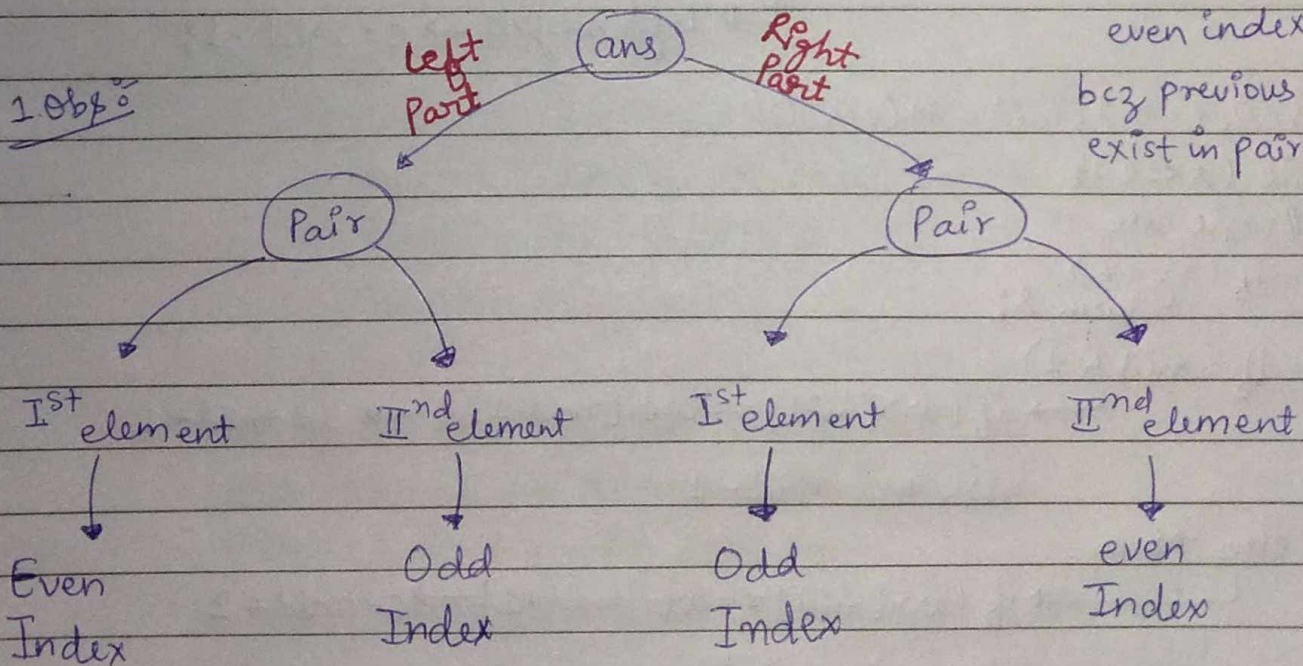 ans
Left
Part
Right
Part
even index
bcz previous
exist in pair
1. Obs:
Pair
Pair
Ist element
IInd element
Ist element
IInd element
Even
Index
Odd
Index
Odd
Index
even
Index